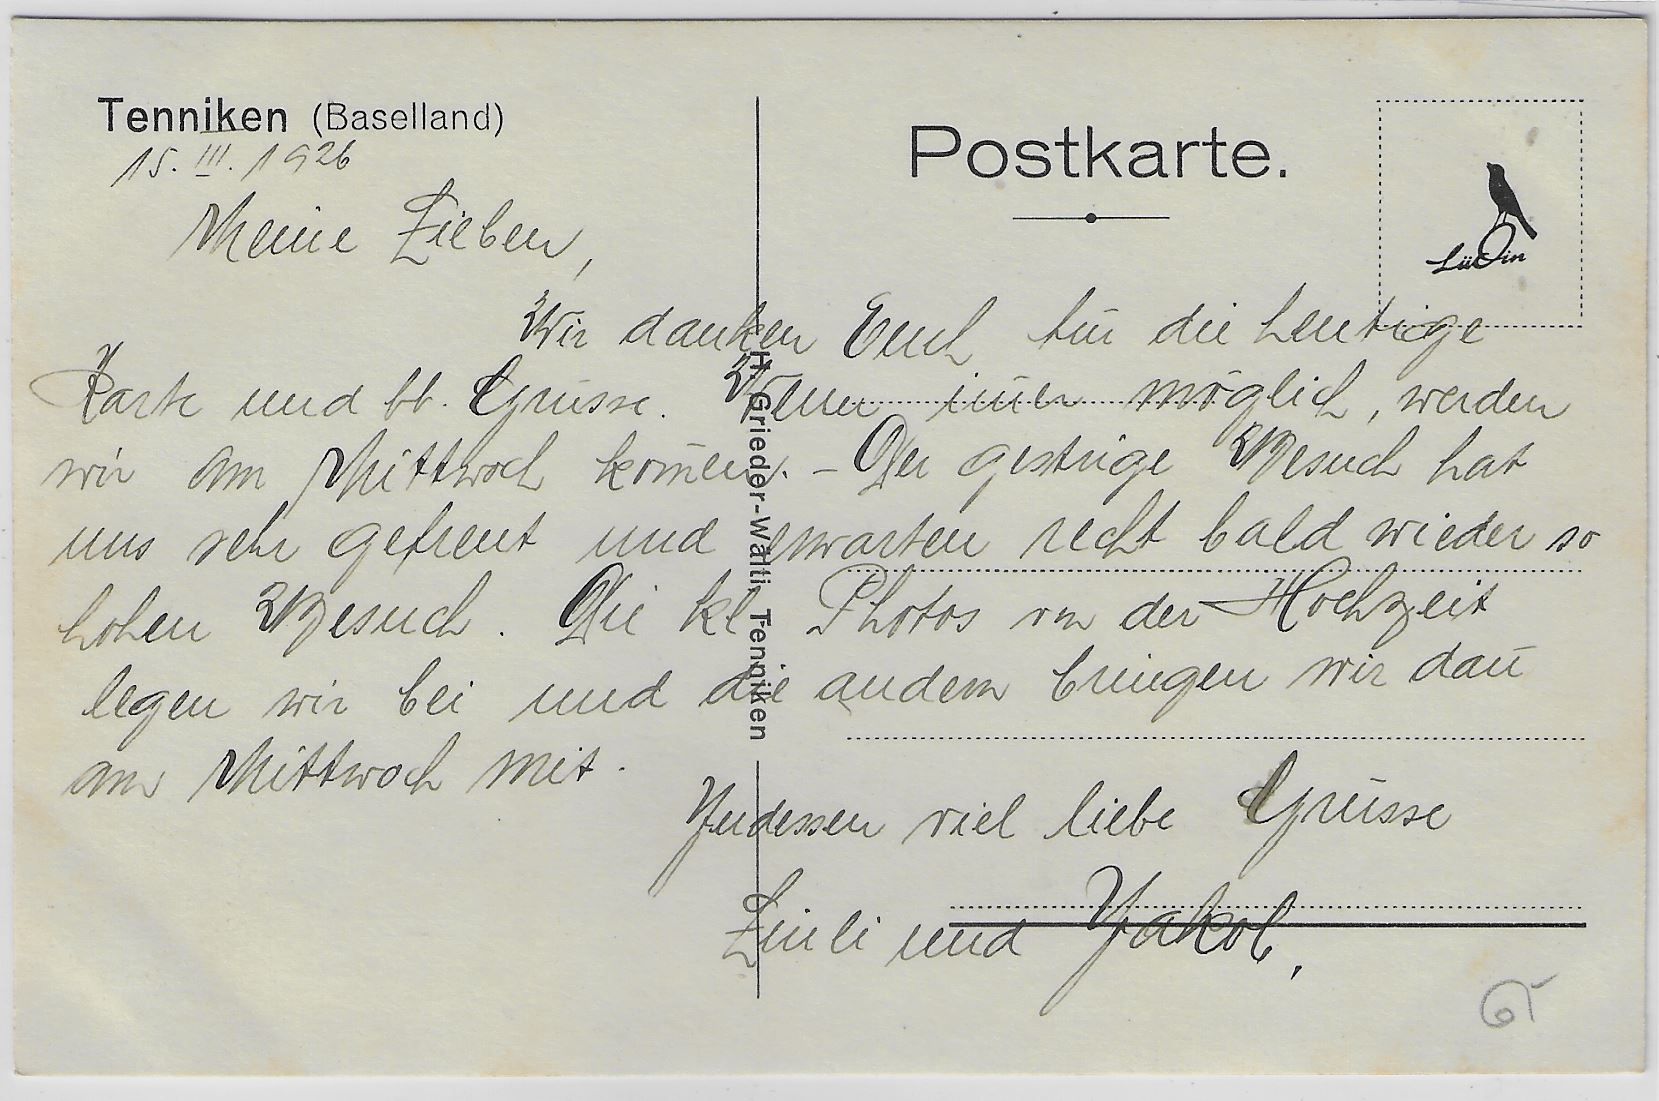 Tenniken (Baselland)
15. III. 1926
Postkarte.
Lüdin
Meine Lieben,
Wir danken Euch für die heutige
Karte und bb. Grüsse. Wenn im̄er möglich, werden
wir am Mittwoch kom̄en. – Der gestrige Besuch hat
uns sehr gefreut und erwarten recht bald wieder so
hohen Besuch. Die kl. Photos von der Hochzeit
legen wir bei und die andern bringen wir dan̄
am Mittwoch mit.
Indessen viel liebe Grüsse
und Jakob.
H. Grieder-Wälti, Tenniken